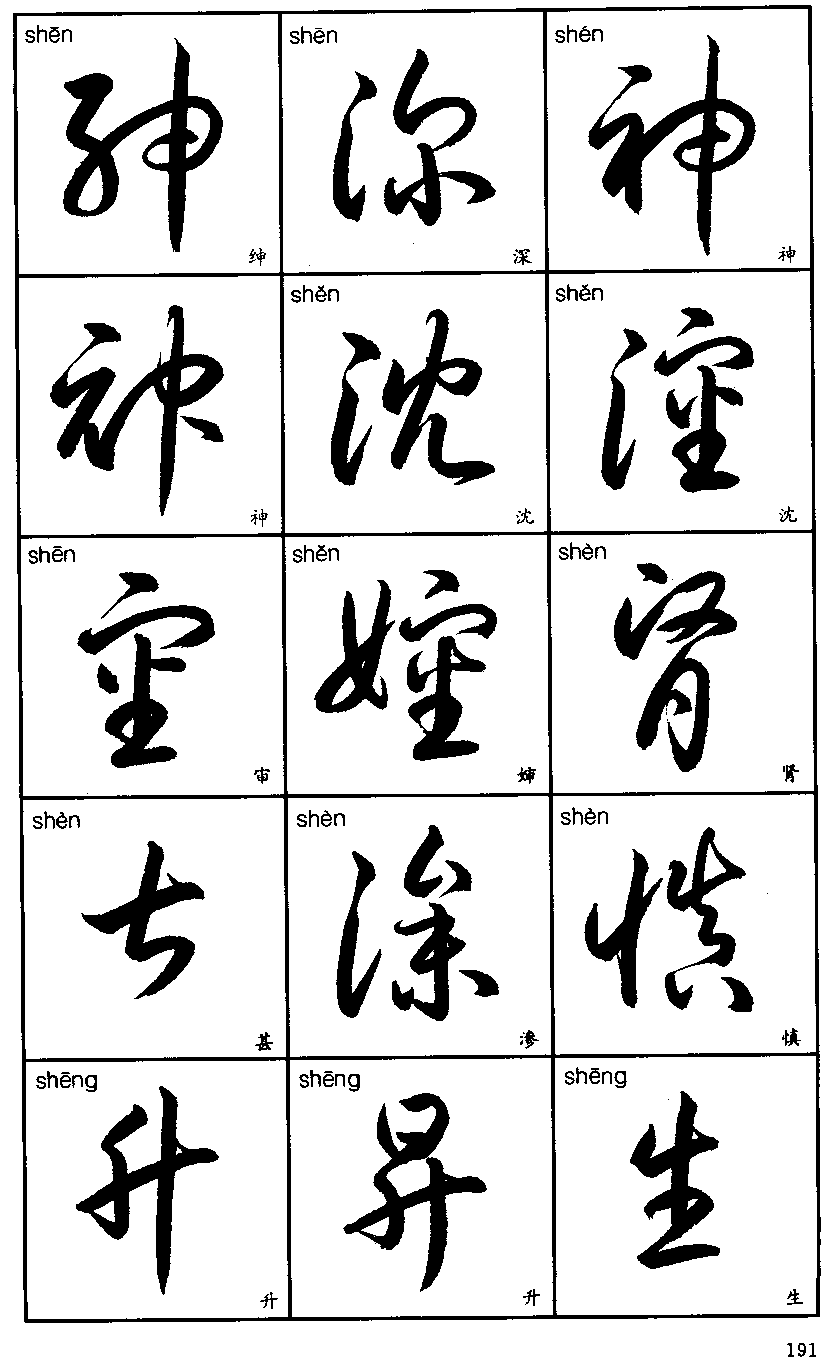 shēn shēn shén
绅 深 神
shěn shěn
神 沈 沈
shēn shěn shèn
审 婶 肾
shèn shèn shèn
甚 渗 慎
shēng shēng shēng
升 升 生
191